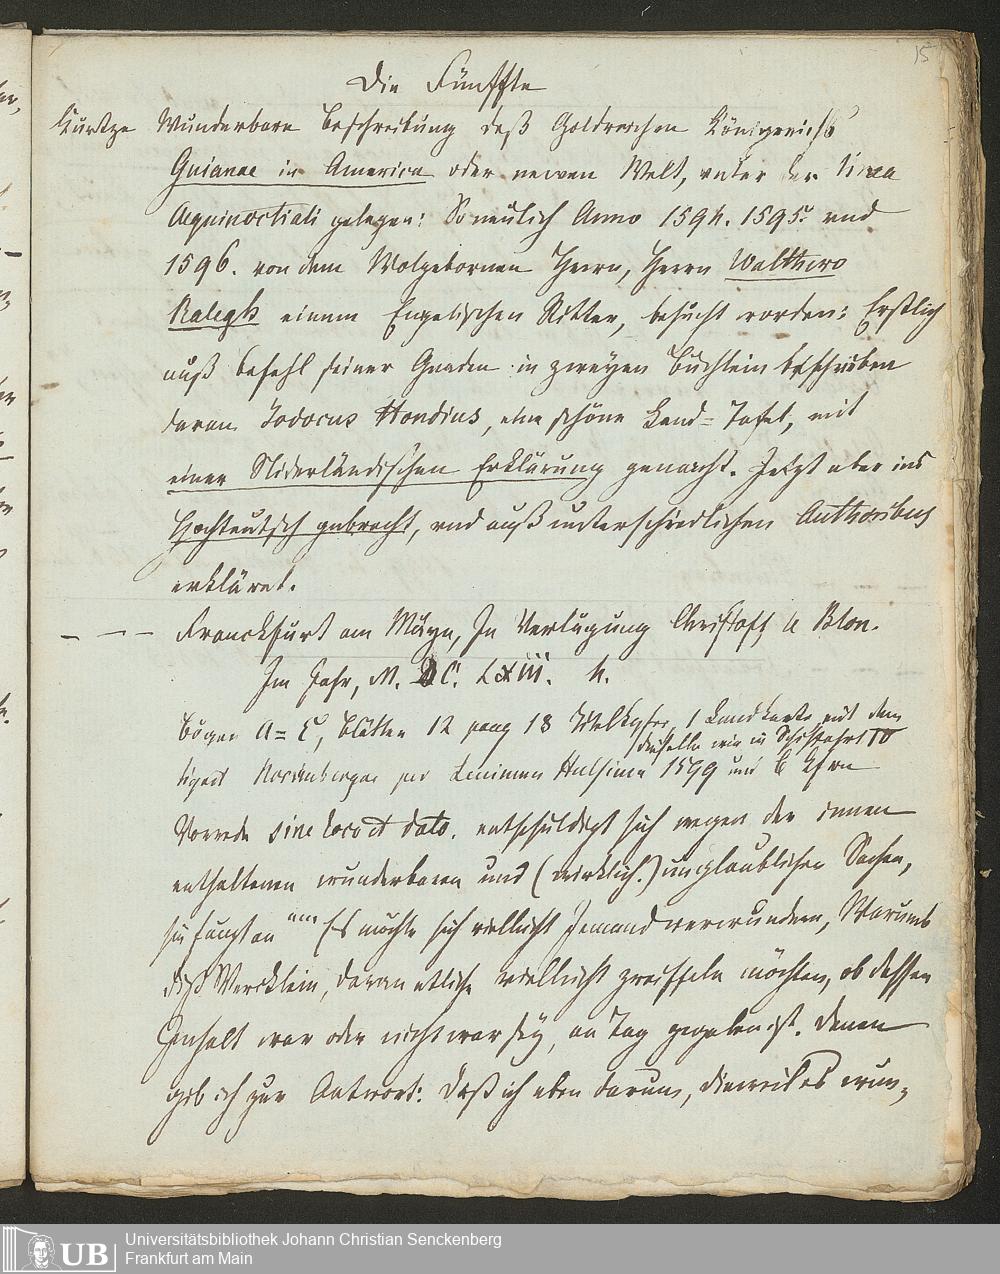 15
Die Fünffte
Kurtze Wunderbare Beschreibung deß Goldreichen Königreichs
Guianae in America oder newen Welt, vnter der Linea
Aequinoctiali gelegen: So neulich Anno 1594. 1595. vnd
1596. von dem Wolgebornen Herrn, Herrn Walthero
Ralegh einem Engelischen Ritter, besucht worden: Erstlich
auß befehl seiner Gnaden in zweyen Büchlein beschrieben
daran Jodocus Hondius, eine schöne Land=Tafel, mit
einer Niderländischen Erklärung gemacht. Jetzt aber ins
Hochteutsch gebracht, vnd auß unterschiedlichen Authoribus
erkläret.
— — — Franckfurt am Mäyn, In Verlegung Christoff le Blon.
Im Jahr, M. DC. LXIII. 4.
Bögen A=C, Blätter 12 pag 18 1 Landkarte mit dem
dieselbe wie in Schiffahrt
Noribergae per Levinum Hulsium 1599 und
Vorrede sine loco et dato. entschuldigt sich wegen der innen
enthaltenen wunderbaren und (wirklich.) unglaublichen Sachen,
sie fangt an Es möchte sich vielleicht Jemand verwundern, Warumb
diß Wercklein, daran etliche vielleicht zweiffeln möchten, ob dessen
Inhalt war oder nicht war sey, an Tag gegeben ist. Denen
gib ich zur Antwort: Daß ich eben darum, dieweil es wun=
UB
Universitätsbibliothek Johann Christian Senckenberg
Frankfurt am Main